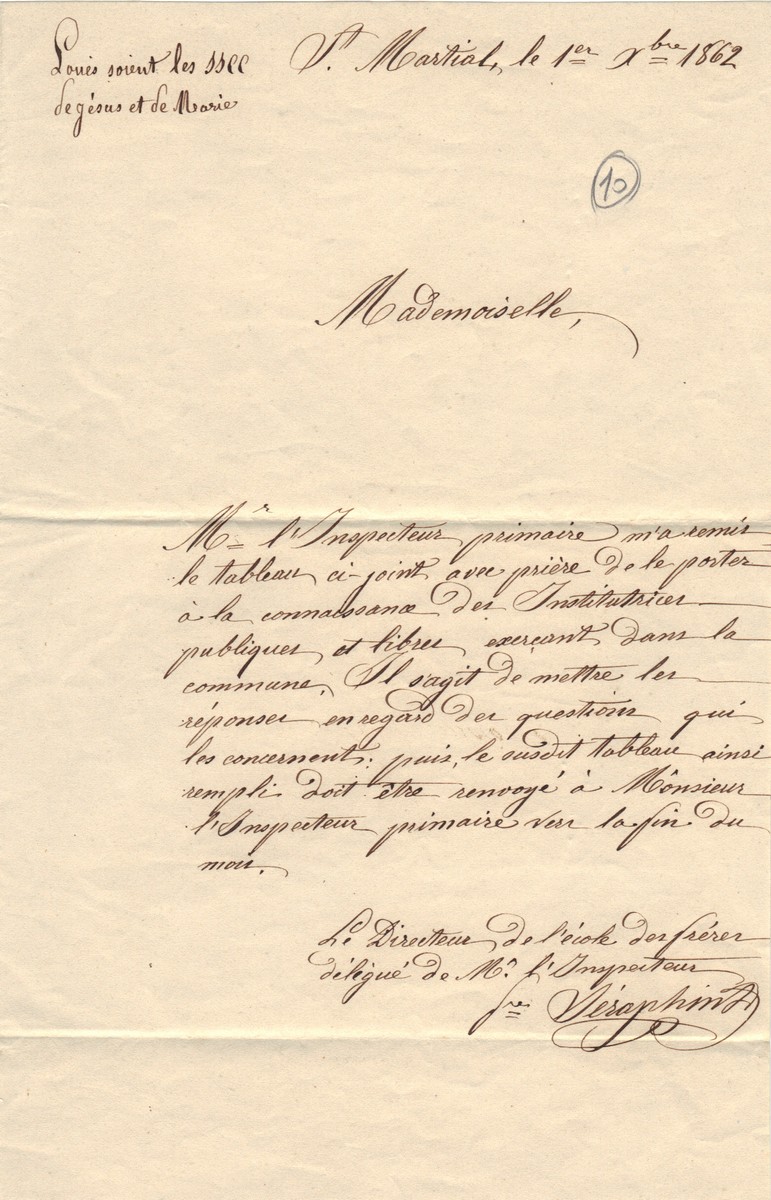 Loués soient les SSCC
de Jésus et de Marie
St. Martial, le 1er Xbre 1862
10
Mademoiselle,
Mr l'Inspecteur primaire m'a remis
le tableau ci-joint avec prière de le porter
à la connaissance des Institutrices
publiques et libres exerçant dans la
commune. Il s'agit de mettre les
réponses en regard des questions qui
les concernent: puis, le susdit tableau ainsi
rempli doit être renvoyé à Monsieur
l'Inspecteur primaire vers la fin du
mois.
Le Directeur de l'école des frères
délégué de Mr. l'Inspecteur
fre Séraphin